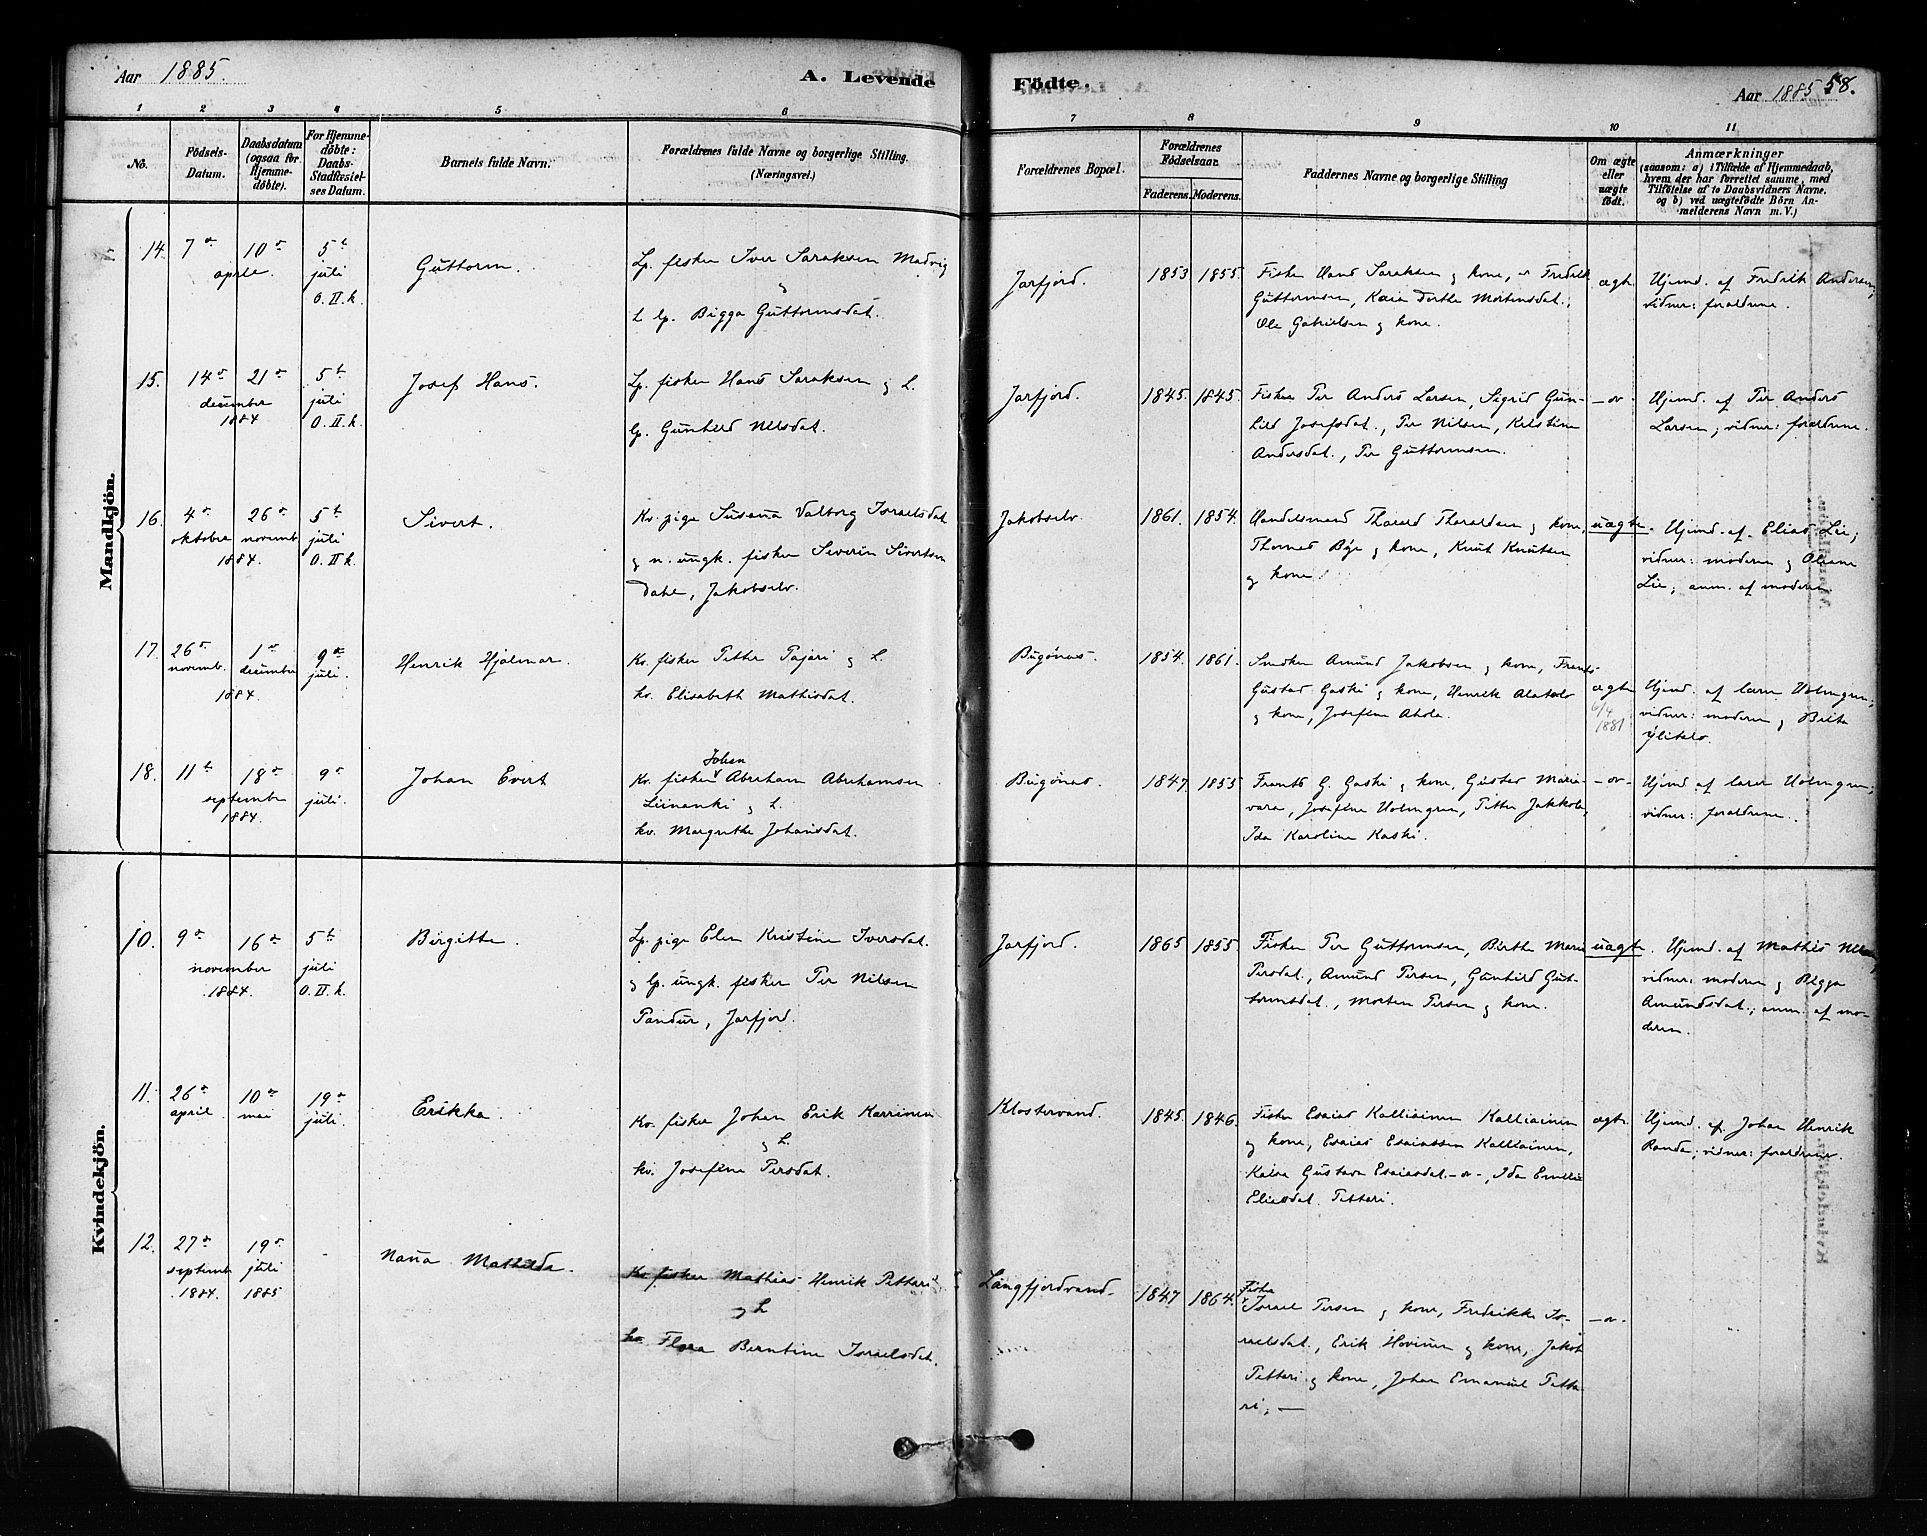 Aar 1885.
A. Levende
Födte.
Aar 1885 58.
1 2 3 4 5 6 7 8 9 10 11
No.
Födsels-Datum.
Daabsdatum (ogsaa for Hjemmedöbte).
For Hjemmedöbte: Daabs-Stadfæstelses Datum.
Barnets fulde Navn.
Forældrenes fulde Navne og borgerlige Stilling. (Næringsvei.)
Forældrenes Bopæl.
Forældrenes Födselsaar.
Faderens. Moderens.
Faddernes Navne og borgerlige Stilling
Om ægte eller uægte födt.
Anmærkninger
(saasom: a) i Tilfælde af Hjemmedaab, hvem der har forrettet samme, med Tilföielse af to Daabsvidners Navne, og b) ved uægtefödte Börn Anmelderens Navn m. V.)
Mandkjön.
14. 7de 10de 5te
april juli
O. II. k.
Guttorm.
Lp. fisker Iver Saraksen Madvig
&
L lp. Bigga Guttormsdat.
Jarfjord.
1853 1855.
Fisker Hans Saraksen og kone, Fredrik
Guttormsen, Mortensdat.,
Ole Gabrielsen og kone.
ægte
Hjemd. af Fredrik Andersen;
vidner: forældrene.
15. 14de 21de 5te
december juli
1884 O. II. k.
Josef Hans.
Lp. fisker Hans Saraksen og L.
lp. Gunhild Nilsdat.
Jarfjord.
1845. 1845.
Fisker Per Anders Larsen, Sigrid Gun-
hild Josefsdat., Per Nilsen, Kristine
Andersdat., Per Guttormsen.
Hjemd. af Per Anders
Larsen; vidner: forældrene.
16. 4de 26de 5te
oktober novemb juli
1884. O. II k.
Sivert.
Kv. pige Susana Valborg Israelsdat
og n. ungk. fisker Severin Sivertsen
Dahl, Jakobselv.
Jakobselv.
1861. 1854.
Handelsmand Tharald Tharaldsen og kone,
Thomas Bye og kone, Knut Knutsen
og kone.
uægte.
Hjemd. af Elias Lie;
vidner: moderen og Oliane
Lie; anm. af moderen.
17. 26de 1ste 9de
novemb. december juli.
1884.
Henrik Hjalmar.
Kv. fisker Petter Pajari og L.
kv. Elisabeth Mathisdat.
Bugönæs.
1854. 1861.
Smeden Amund Jakobsen og kone, Frants
Gustav Gaski og kone, Henrik Alatalo
og kone, Josefine Ahola.
ægte
6/4
1881
Hjemd. af lærer Holmgren;
vidner: moderen og Brita
Ylitalo.
18. 11te 18de 9de
september juli.
1884.
Johan Evert
Johan
Kv. fisker Abraham Abrahamsen
Liinanki og L.
kv. Margrethe Johansdat.
Bugönæs.
1847 1855
Frants G. Gaski og kone, Gustav Marie-
vara, Josefine Holmgren, Petter Jakkola,
Ida Karoline Kaski.
Hjemd. af lærer Holmgren;
vidner: forældrene.
Kvindekjön.
10. 9de 16de 5te
november juli
1884. O. II. k.
Birgitte.
Lp. pige Elen Kristine Iversdat.
og lp. ungk. fisker Per Nilsen
Pandur, Jarfjord.
Jarfjord.
1865 1855
Fisker Per Guttormsen, Birthe Marie
Persdat., Amund Persen, Gunhild Gut-
tormsdat., Morten Persen og kone.
uægte.
Hjemd. af Mathis Nilsen;
vidner: moderen og Bigga
Amundsdat.; anm. af mo-
deren.
11. 26de 10de 19de
april mai juli.
Erikka.
Kv. fisker Johan Erik Karrinen
og L.
kv. Josefine Persdat.
Klostervand.
1845. 1846.
Fisker Esaias Kalliainen
og kone, Esaias Esaiassen Kalliainen,
Kaisa Gustava Esaiasdat. Ida Emilie
Eliasdat. Pettari.
ægte
Hjemd. af Johan Henrik
Randa; vidner: forældrene.
12. 27de 19de
septemb juli
1884. 1885
Nana Mathilda.
Kv fisker Mathias Henrik Pettari
og L
kv. Flora Berntine Israelsdat.
Langfjordvand.
1847 1864.
Fisker
Israel Persen og kone, Fredrikke Is-
raelsdat., Erik Hovinen og kone, Jakob
Pettari og kone, Johan Emanuel Petta-
ri,